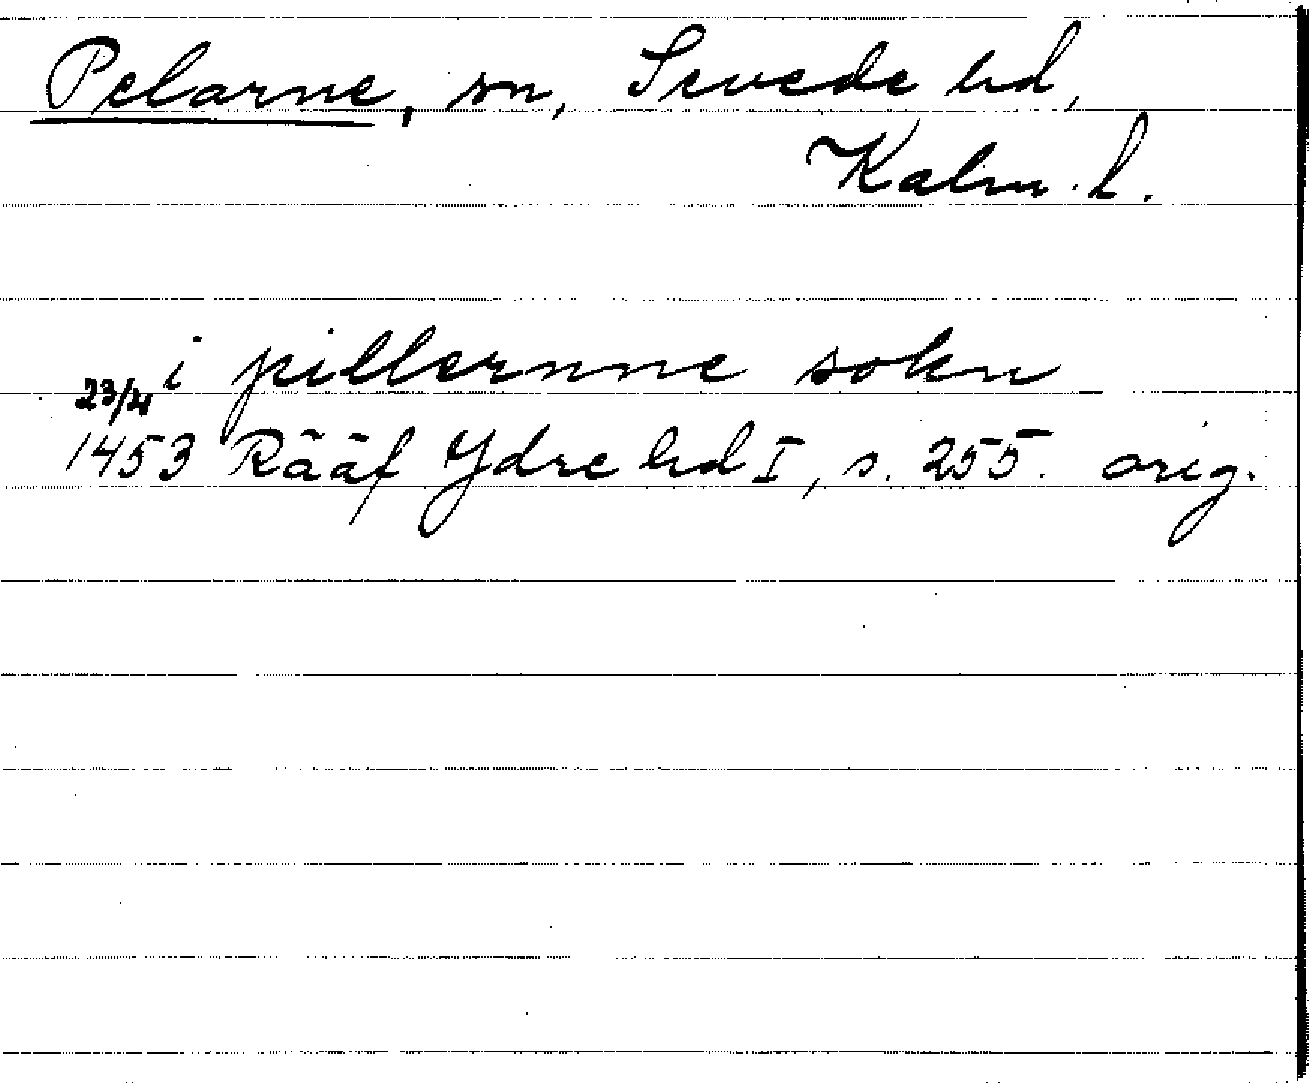 Pelarne, sn, Sevede hd,
Kalm. l.
i pillernne sokn
23/4
1453 Rääf Ydre hd I, s. 255. orig.